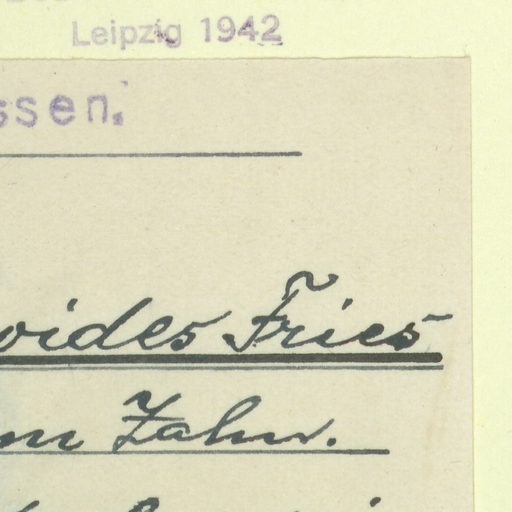 Leipzig 1942
ssen.
oides Fries
m Zahn.